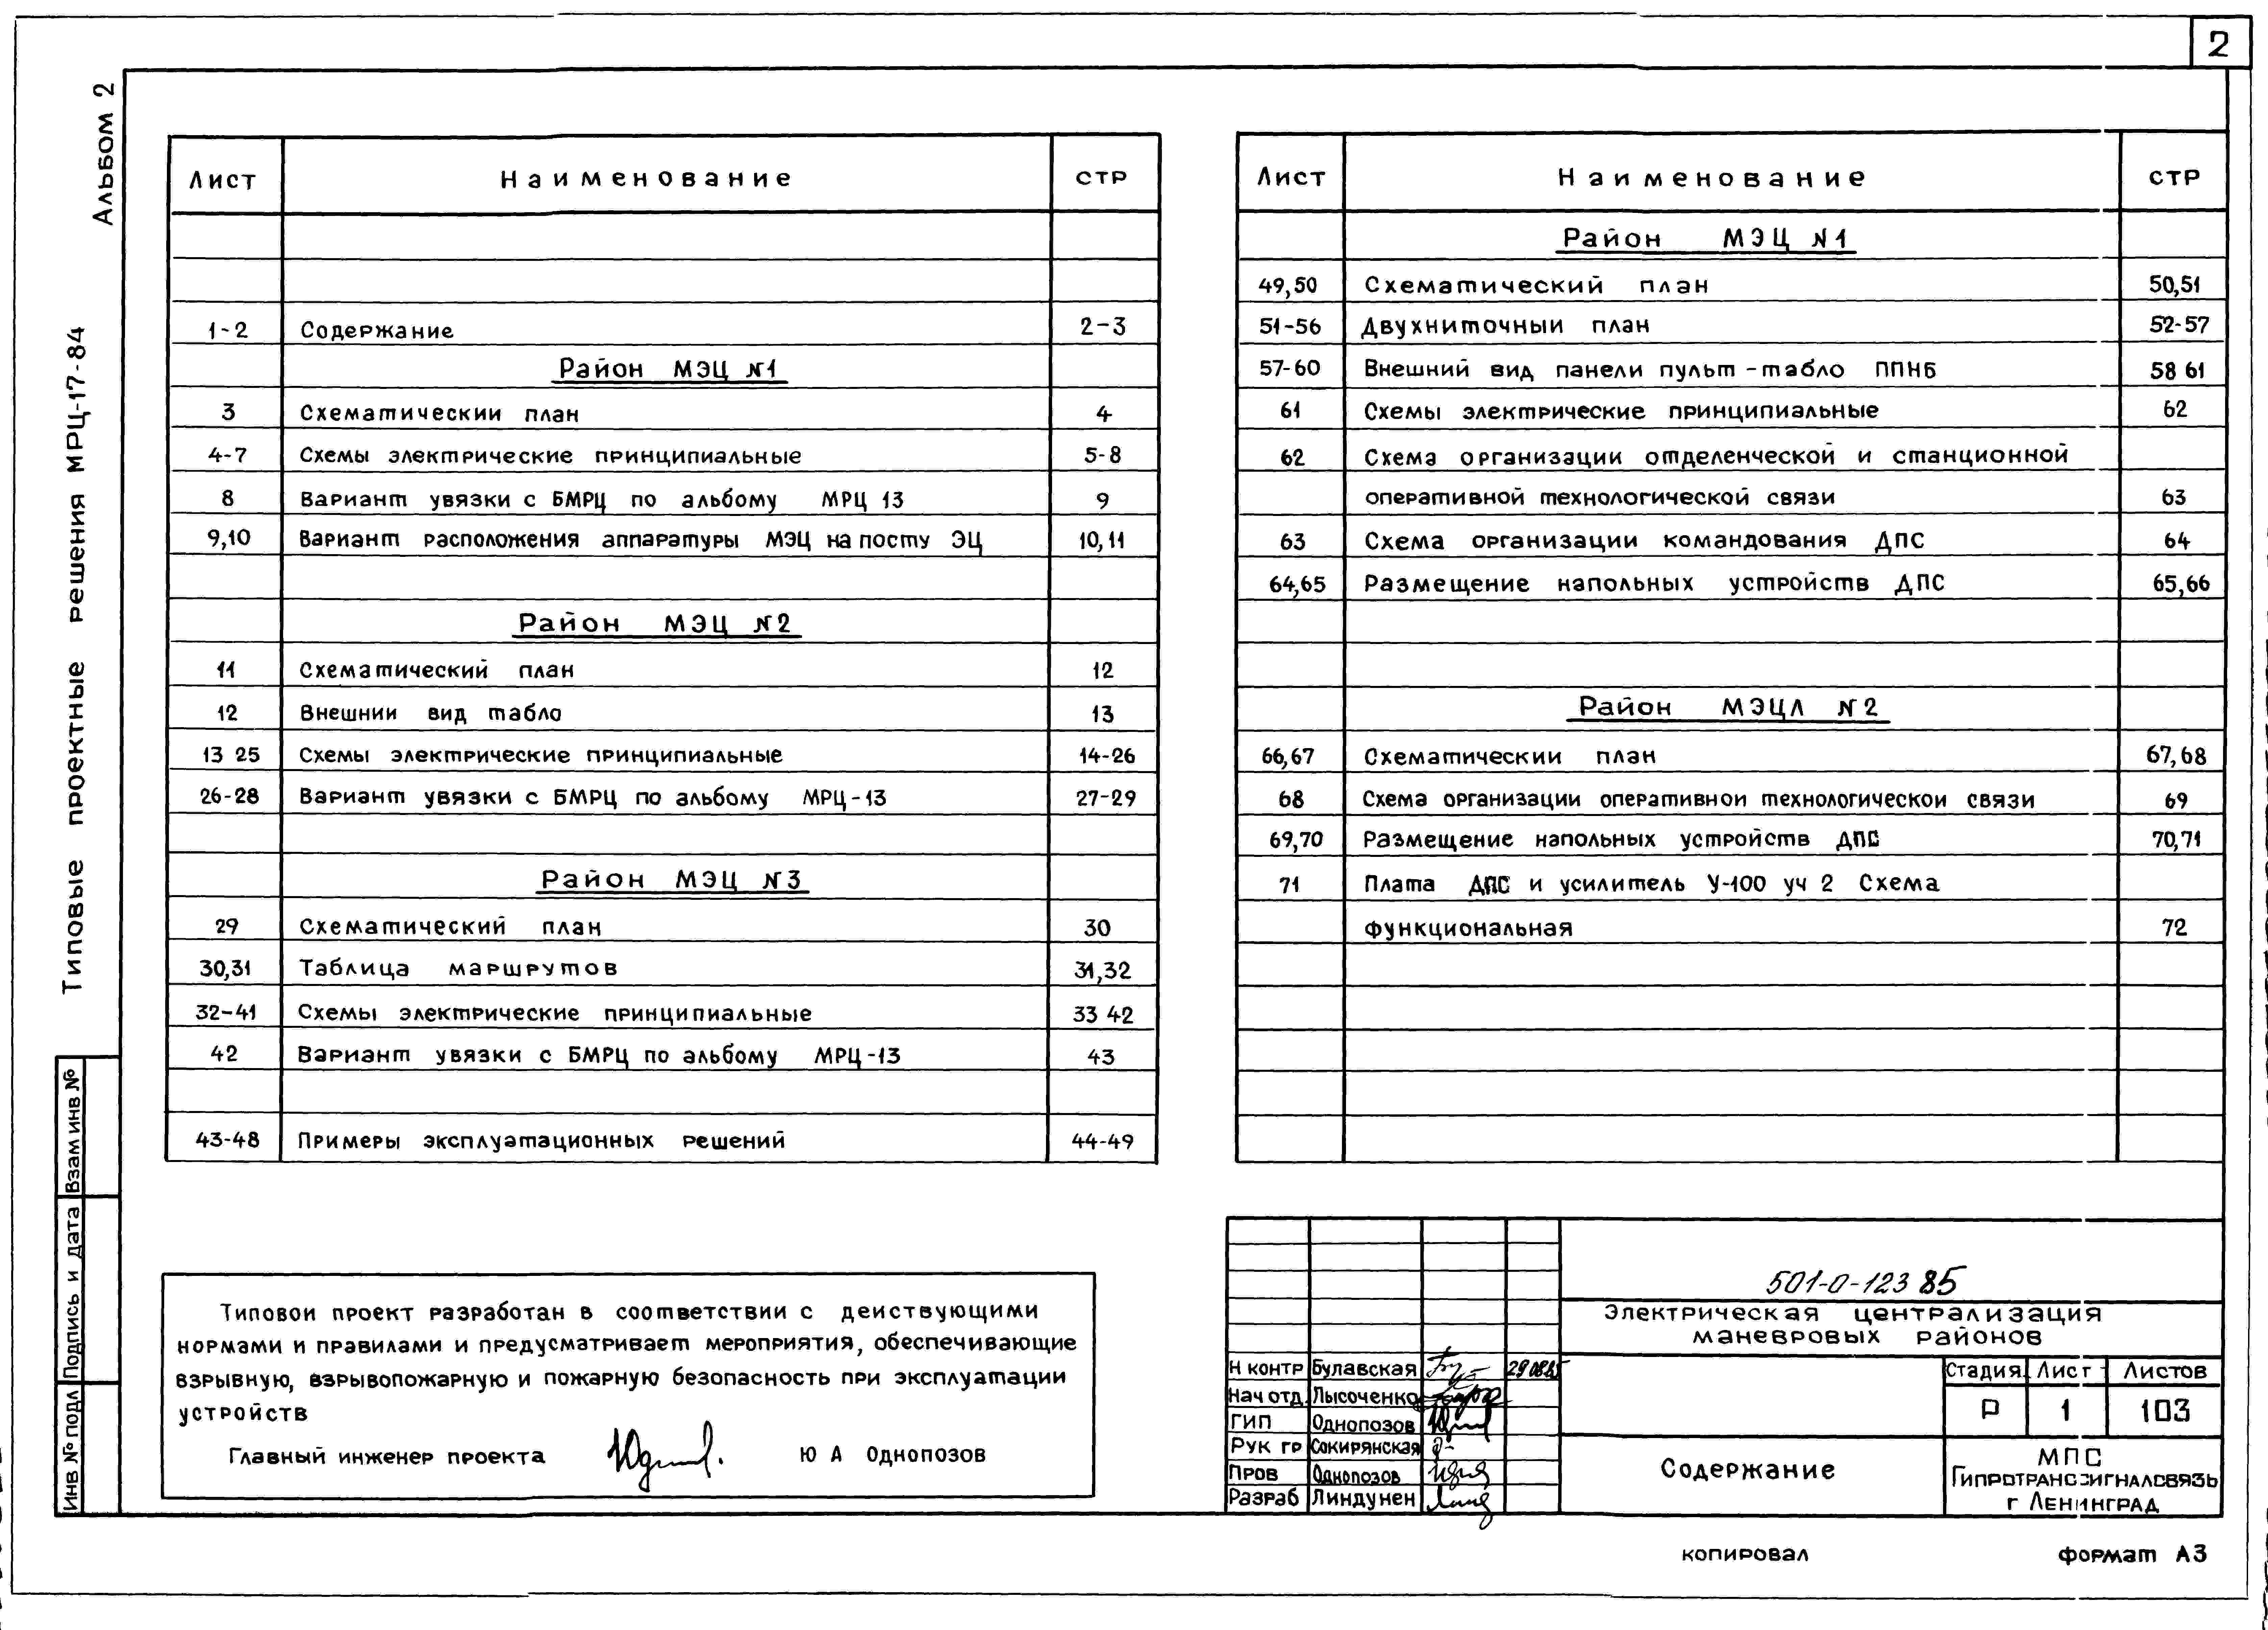 2
Альбом 2
Типовые проектные решения МРЦ-17-84
Лист Наименование стр
1-2 Содержание 2-3
Район МЭЦ №1
3 Схематическии план 4
4-7 Схемы электрические принципиальные 5-8
8 Вариант увязки с БМРЦ по альбому МРЦ 13 9
9,10 Вариант расположения аппаратуры МЭЦ на посту ЭЦ 10,11
Район МЭЦ №2
11 Схематический план 12
12 Внешнии вид табло 13
13 25 Схемы электрические принципиальные 14-26
26-28 Вариант увязки с БМРЦ по альбому МРЦ-13 27-29
Район МЭЦ №3
29 Схематический план 30
30,31 Таблица маршрутов 31,32
32-41 Схемы электрические принципиальные 33 42
42 Вариант увязки с БМРЦ по альбому МРЦ-13 43
43-48 Примеры эксплуатационных решений 44-49
Лист Наименование стр
Район МЭЦ №1
49,50 Схематический план 50,51
51-56 Двухниточныи план 52-57
57-60 Внешний вид панели пульт-табло ППНБ 58 61
61 Схемы электрические принципиальные 62
62 Схема организации отделенческой и станционной
оперативной технологической связи 63
63 Схема организации командования ДПС 64
64,65 Размещение напольных устройств ДПС 65,66
Район МЭЦЛ №2
66,67 Схематическии план 67,68
68 Схема организации оперативнои технологическои связи 69
69,70 Размещение напольных устройств ДПС 70,71
71 Плата ДПС и усилитель У-100 уч 2 Схема
функциональная 72
Типовои проект разработан в соответствии с деиствующими
нормами и правилами и предусматривает мероприятия, обеспечивающие
взрывную, взрывопожарную и пожарную безопасность при эксплуатации
устройств
Главный инженер проекта Ю А Однопозов
501-0-123 85
Электрическая централизация
маневровых районов
Н контр Булавская 290885
Нач отд. Лысоченко
ГИП Однопозов
Рук гр Сокирянская
Пров Однопозов
Разраб Линдунен
Стадия Лист Листов
Р 1 103
Содержание
МПС
Гипротранссигналсвязь
г Ленинград
Взам инв №
Подпись и дата
Инв № подл
копировал формат А3